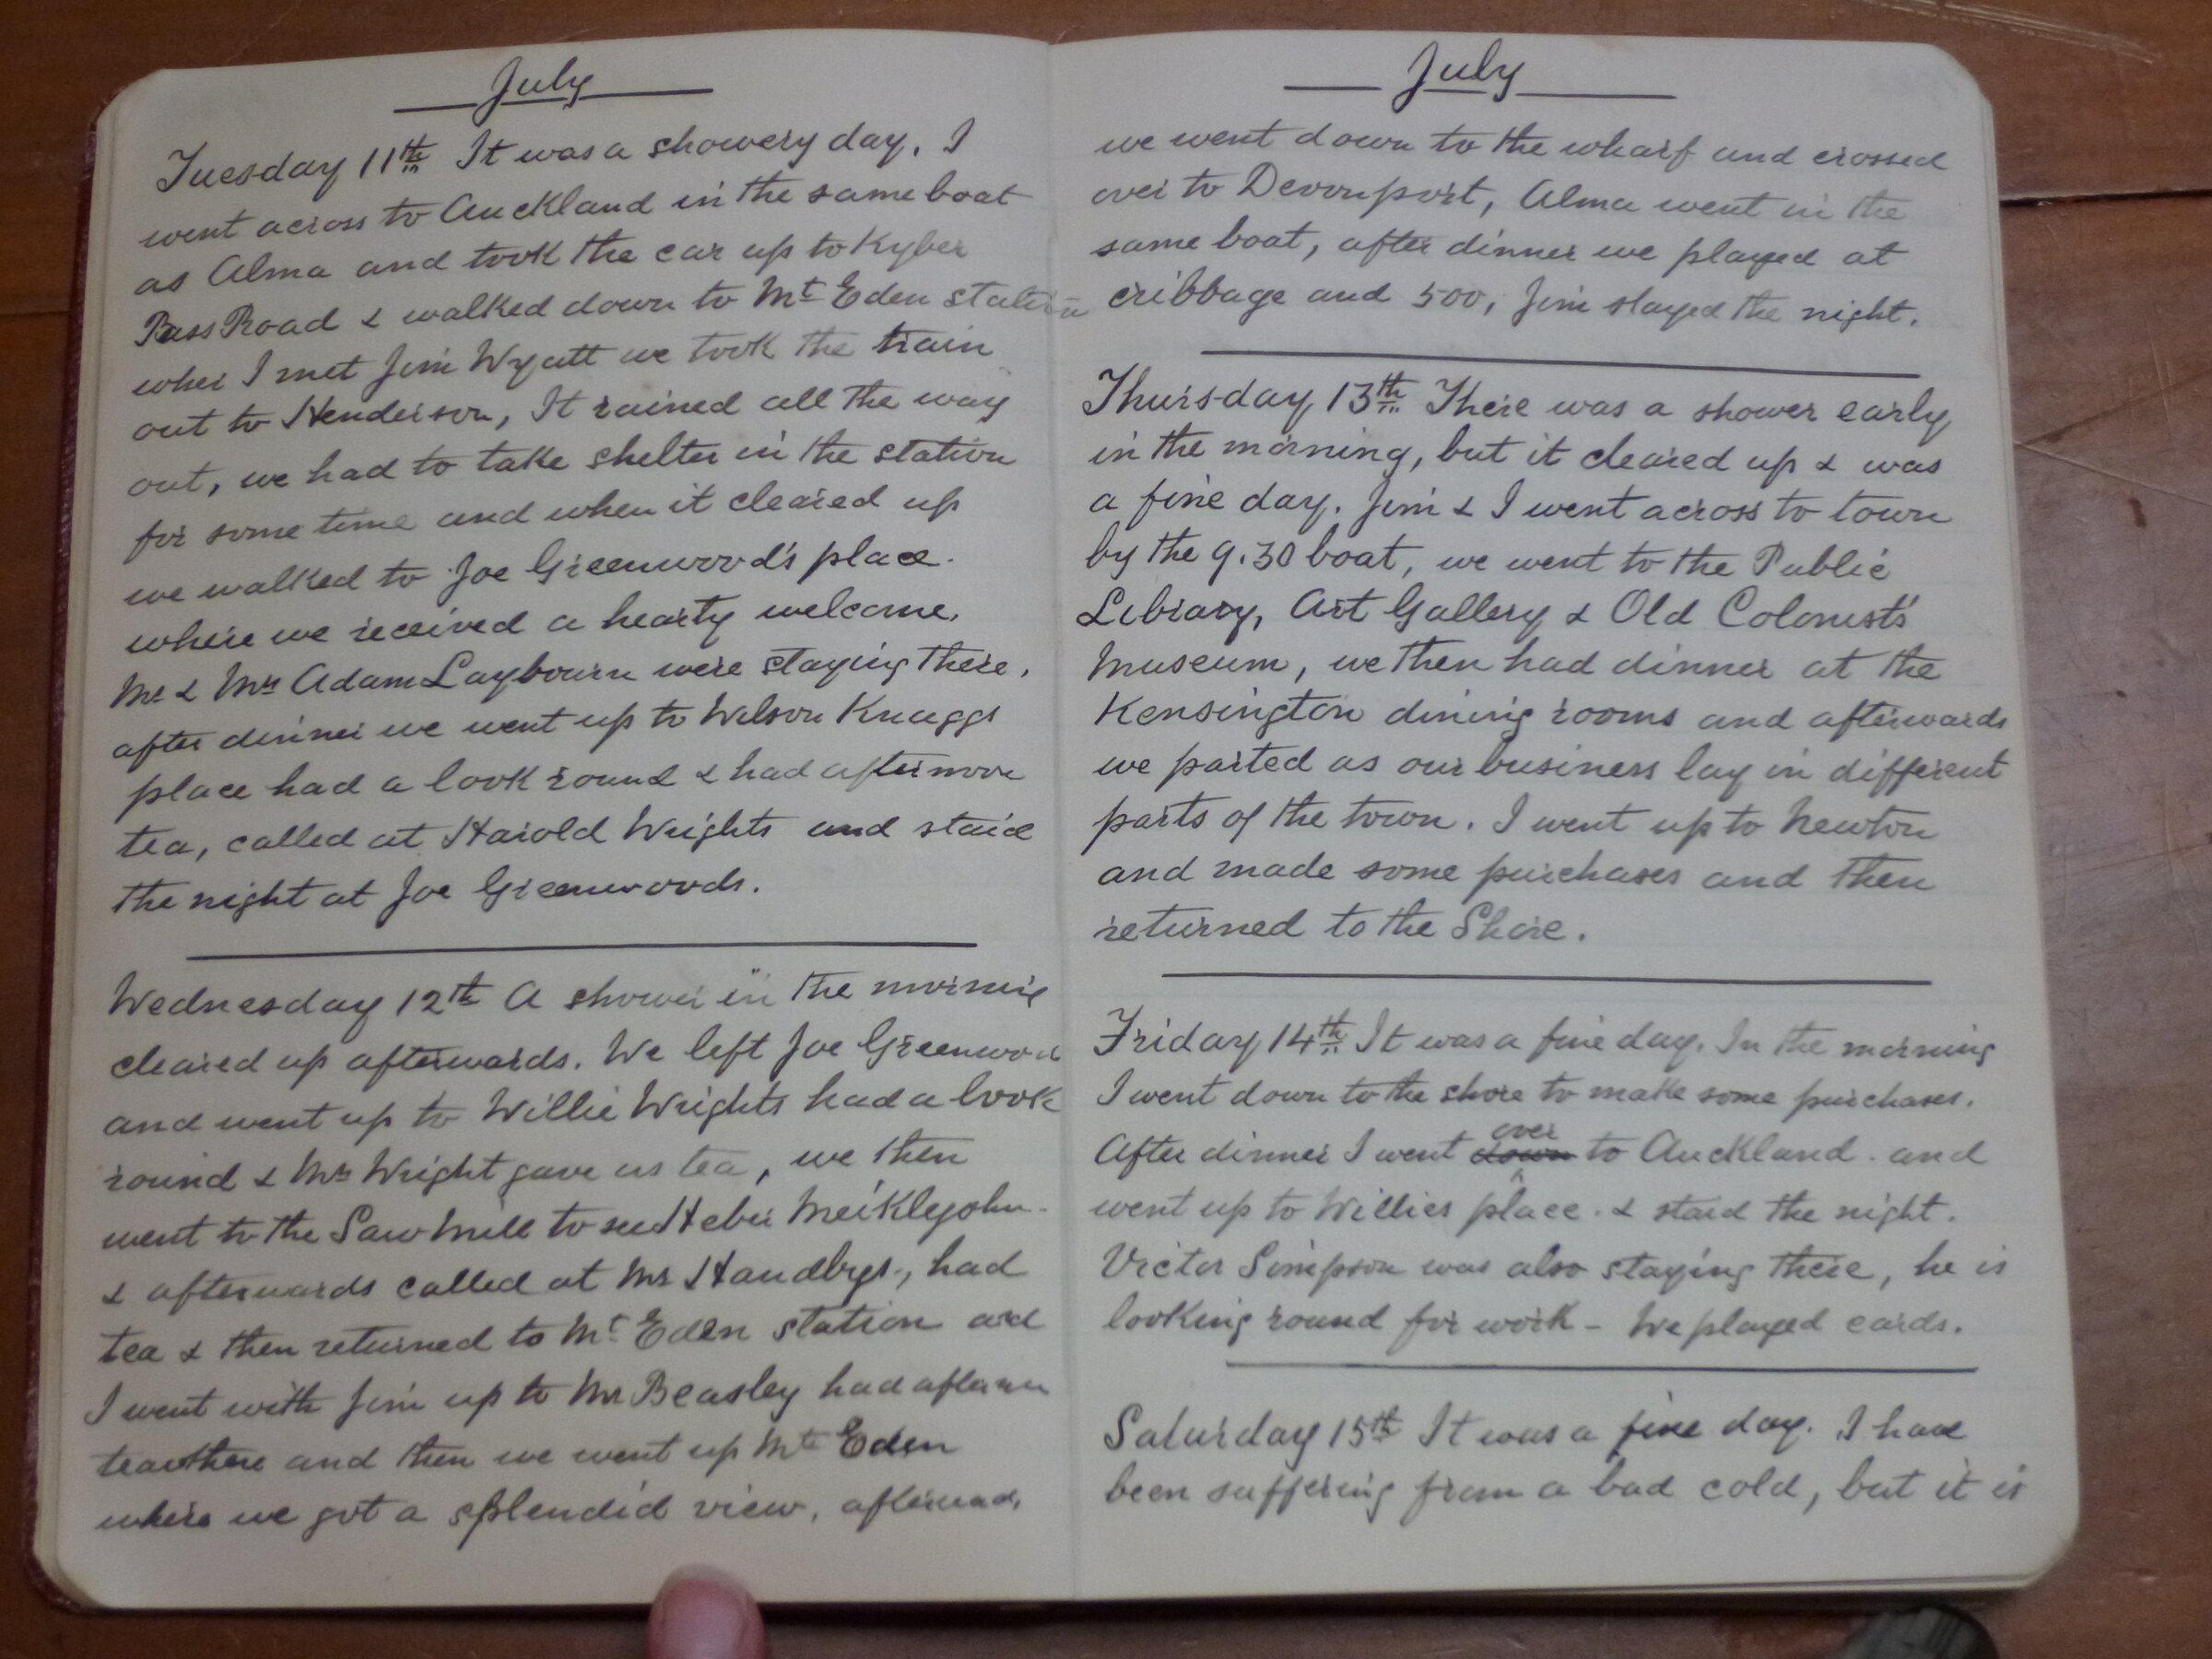 July
Tuesday 11th It was a showery day. I
went across to Auckland in the same boat
as Alma and took the car up to Kyber
Pass Road & walked down to Mt Eden station
wher I met Jim Wyatt we took the train
out to Henderson, It rained all the way
out, we had to take shelter in the station
for some time and when it cleared up
we walked to Joe Greenwood's place.
where we received a hearty welcome.
Mr & Mrs Adam Laybourn were staying there,
after dinner we went up to Wilson Knaggs
place had a look round & had afternoon
tea, called at Harold Wrights and staid
the night at Joe Greenwoods.
Wednesday 12th A shower in the morning
cleared up afterwards. We left Joe Greenwood
and went up to Willie Wrights had a look
round & Mrs Wright gave us tea, we then
went to the Saw Mill to see Heber Meiklejohn.
& afterwards called at Mr Handbys, had
tea & then returned to Mt Eden station and
I went with Jim up to Mr Beasley had
tea there and then we went up Mt Eden
where we got a splendid view, afterwads
July
we went down to the wharf and crossed
over to Devonport, Alma went in the
same boat, after dinner we played at
cribbage and 500, Jim stayed the night.
Thursday 13th There was a shower early
in the morning, but it cleared up & was
a fine day. Jim & I went across to town
by the 9.30 boat, we went to the Public
Library, Art Gallery & Old Colonist's
Museum, we then had dinner at the
Kensington dining rooms and afterwards
we parted as our business lay in different
parts of the town. I went up to Newton
and made some purchases and then
returned to the Shore.
Friday 14th It was a fine day. In the morning
I went down to the shore to make some purchases.
After dinner I went down over to Auckland. and
went up to Willies place. & staid the night.
Victor Simpson was also staying there, he is
looking round for work - We played cards.
Saturday 15th It was a fine day. I have
been suffering from a bad cold, but it is